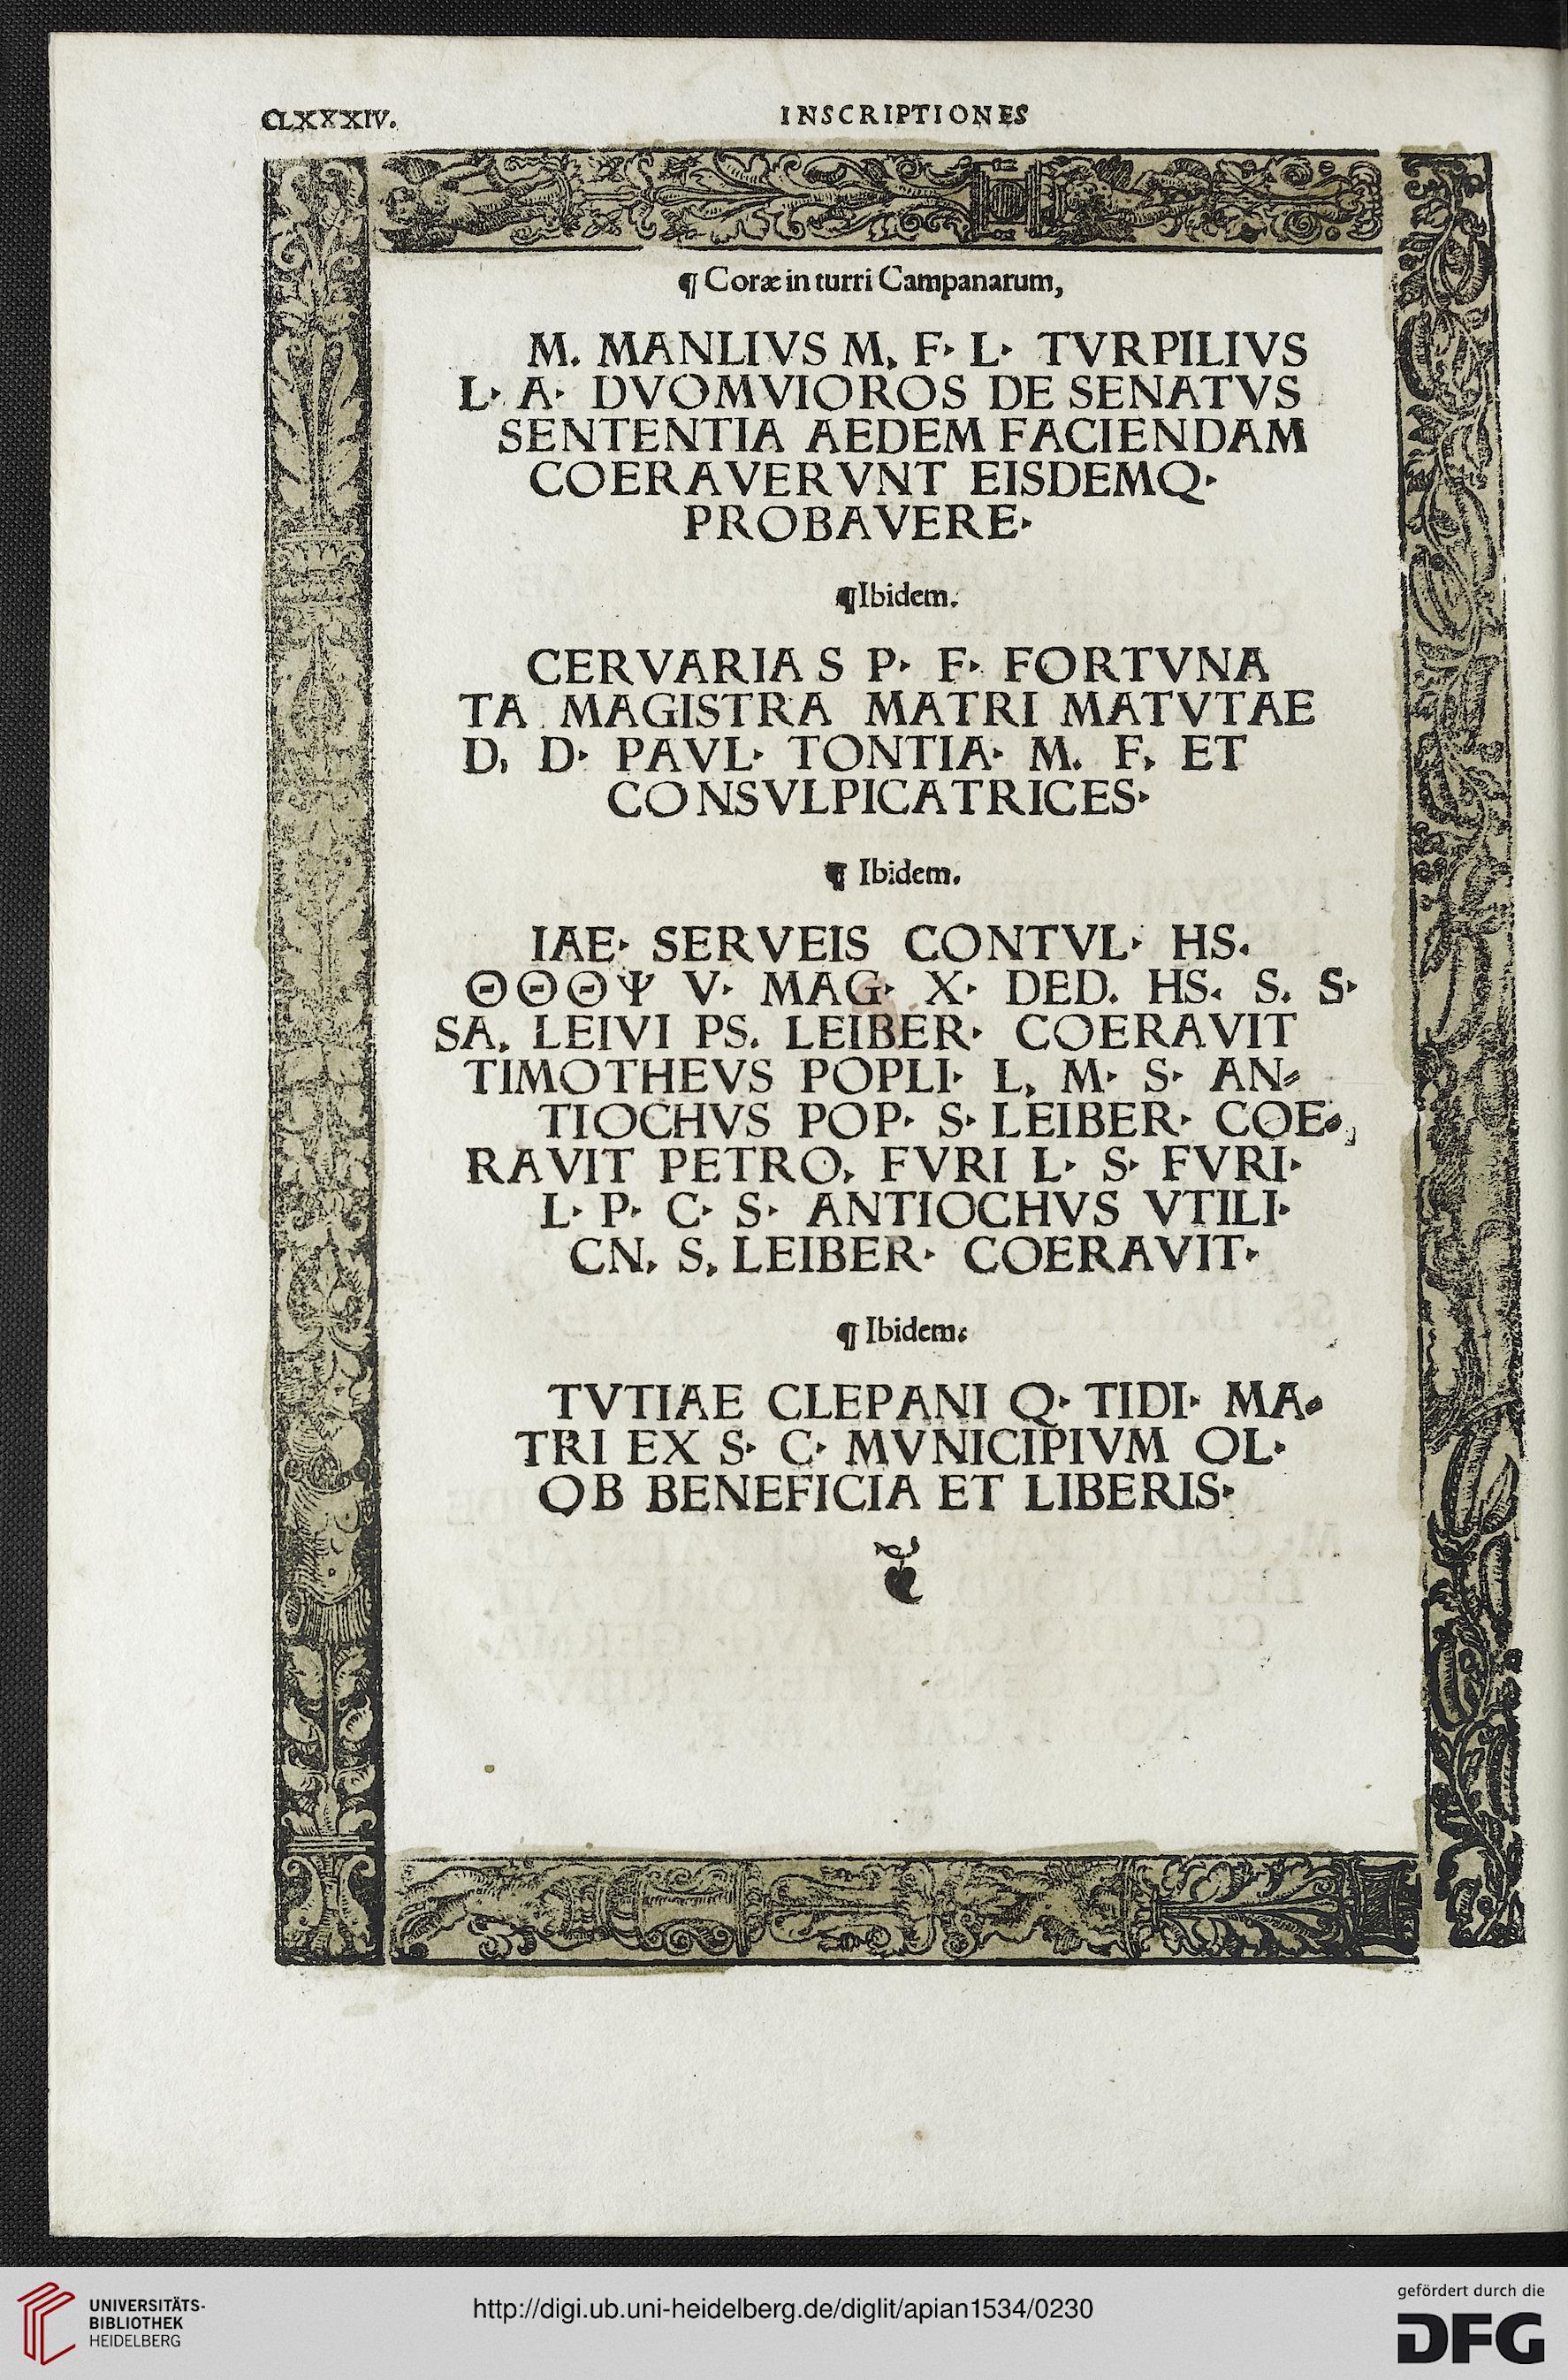 CLXXXIV.
INSCRIPTIONES
¶ Coræ in turri Campanarum,
M. MANLIVS M. F· L· TVRPILIVS
L· A· DVOMVIOROS DE SENATVS
SENTENTIA AEDEM FACIENDAM
COERAVERVNT EISDEMQ·
PROBAVERE·
¶Ibidem.
CERVARIA S P· F· FORTVNA
TA MAGISTRA MATRI MATVTAE
D, D· PAVL· TONTIA· M. F, ET
CONSVLPICATRICES·
¶ Ibidem.
IAE· SERVEIS CONTVL· HS.
ΘΘΘΨ V· MAG· X· DED. HS. S. S·
SA. LEIVI PS. LEIBER· COERAVIT
TIMOTHEVS POPLI· L, M· S· AN⸗
TIOCHVS POP· S· LEIBER· COE⸗,
RAVIT PETRO, FVRI L· S· FVRI·
L· P· C· S· ANTIOCHVS VTILI·
CN, S, LEIBER· COERAVIT·
¶ Ibidem:
TVTIAE CLEPANI Q· TIDI· MA⸗
TRI EX S· C· MVNICIPIVM OL·
OB BENEFICIA ET LIBERIS·
UNIVERSITÄTS-
BIBLIOTHEK
HEIDELBERG
http://digi.ub.uni-heidelberg.de/diglit/apian1534/0230
gefördert durch die
DFG